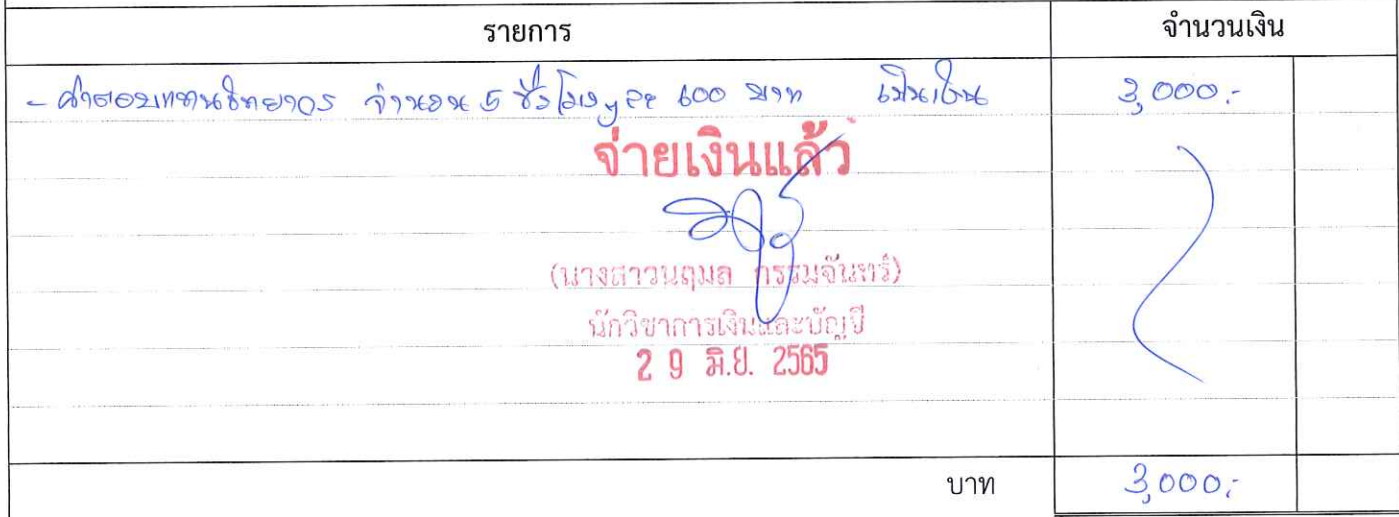 รายการ จำนวนเงิน
- ค่าตอบแทนวิทยากร จำนวน 5 ชั่วโมงๆละ 600 บาท เป็นเงิน 3,000.-
จ่ายเงินแล้ว
(นางสาวนฤมล กรรมจันทร์)
นักวิชาการเงินและบัญชี
2 9 มิ.ย. 2565
บาท 3,000.-